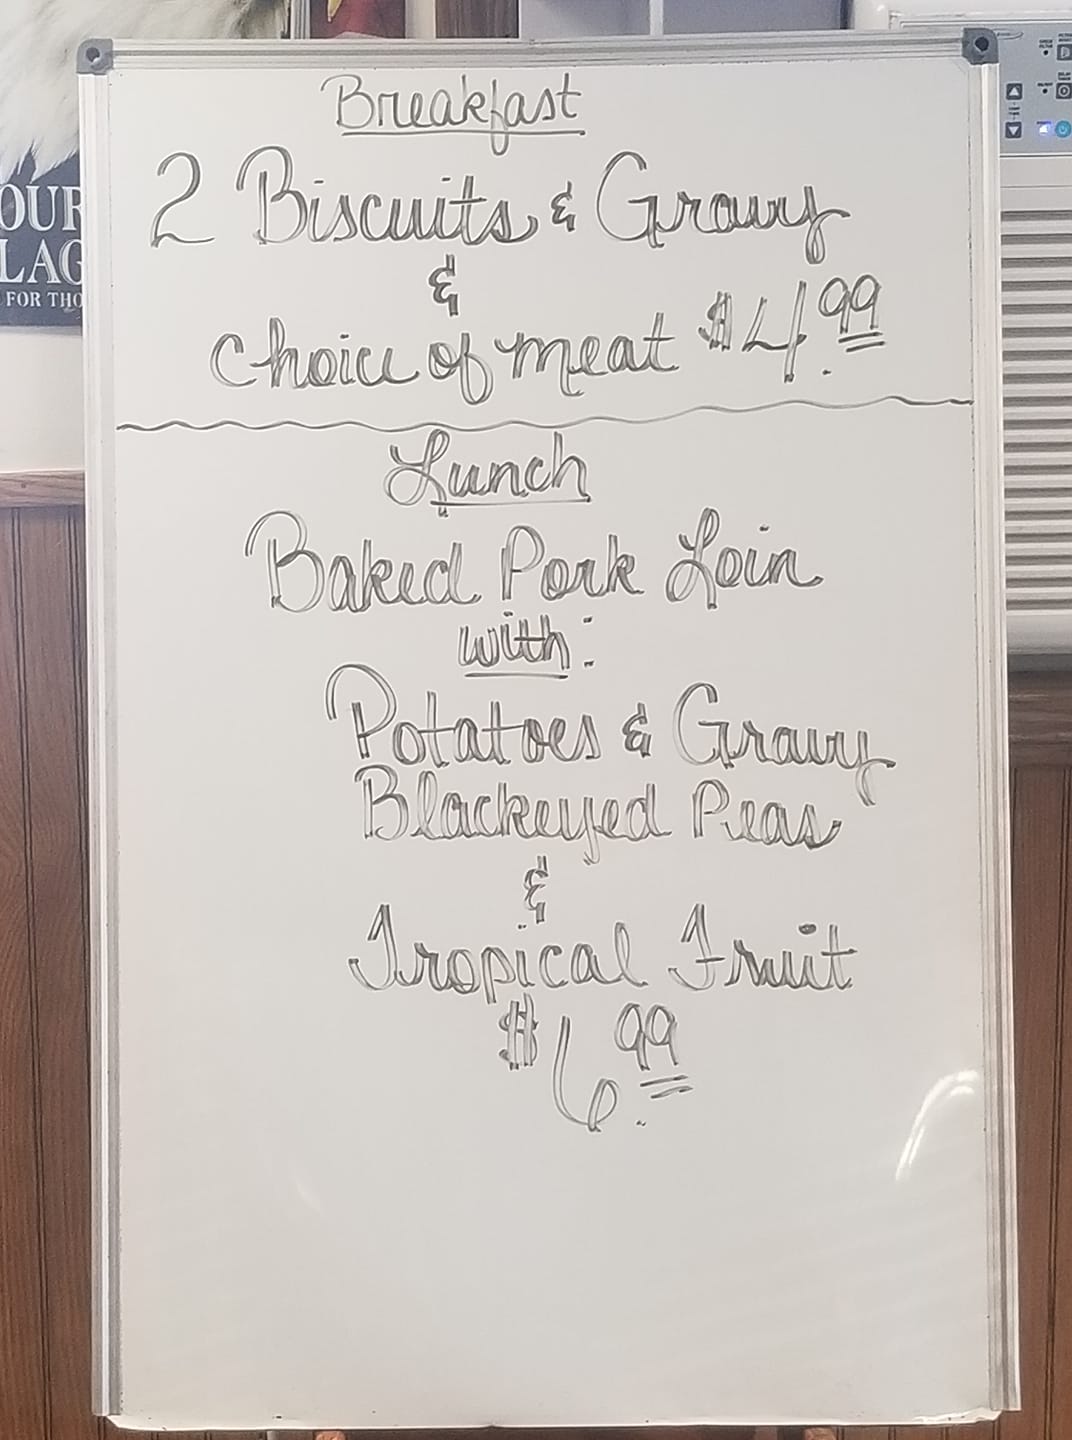 Breakfast
2 Biscuits & Gravy
&
choice of meat $4.99
Lunch
Baked Pork Loin
with:
Potatoes & Gravy
Blackeyed Peas
&
Tropical Fruit
$6.99
OUR
LAG
FOR THO